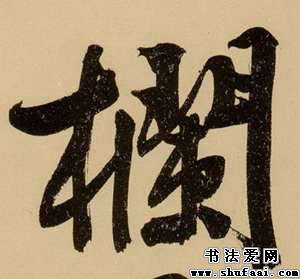 欄
书法爱网
www.shufaai.com